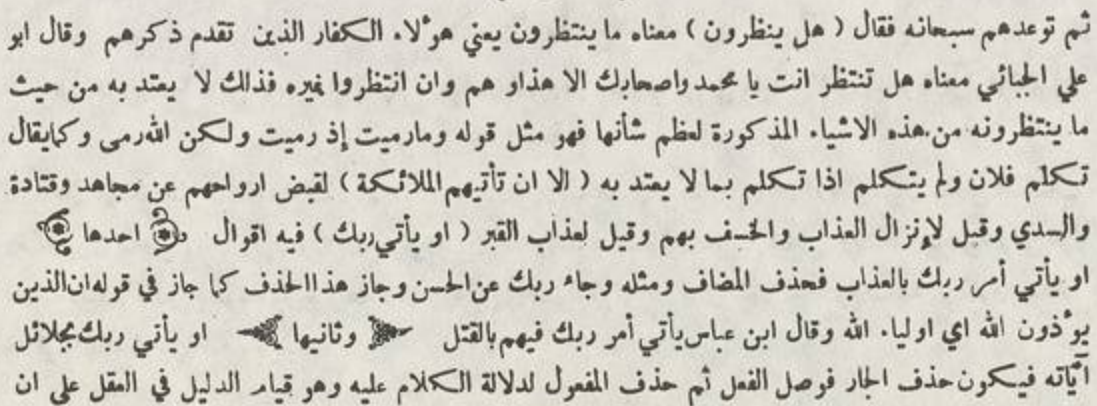 ثم توعدهم سبحانه فقال ( هل ينظرون ) معناه ما ينتظرون يعني هوٴلاء الكفار الذين تقدم ذكرهم وقال ابو
علي الجبائي معناه هل تنتظر انت يا محمد واصحابك الا هذا و هم وان انتظروا غيره فذالك لا يعتد به من حيث
ما ينتظرونه من هذه الاشياء المذكورة لعظم شأنها فهو مثل قوله ومارميت إذ رميت ولكن الله رمى وكما يقال
تكلم فلان ولم يتكلم اذا تكلم بما لا يعتد به ( الا ان تأتيهم الملائكة ) لقبض ارواحهم عن مجاهد وقتادة
والسدي وقيل لإنزال العذاب والخسف بهم وقيل لعذاب القبر ( او يأتي ربك ) فيه اقوال احدها
او يأتي أمر ربك بالعذاب فحذف المضاف ومثله وجاء ربك عن الحسن وجاز هذا الحذف كما جاز في قوله ان الذين
يوٴذون الله اي اولياء الله وقال ابن عباس يأتي أمر ربك فيهم بالقتل وثانيها او يأتي ربك بجلائل
آياته فيكون حذف الجار فوصل الفعل ثم حذف المفعول لدلالة الكلام عليه وهو قيام الدليل في العقل على ان